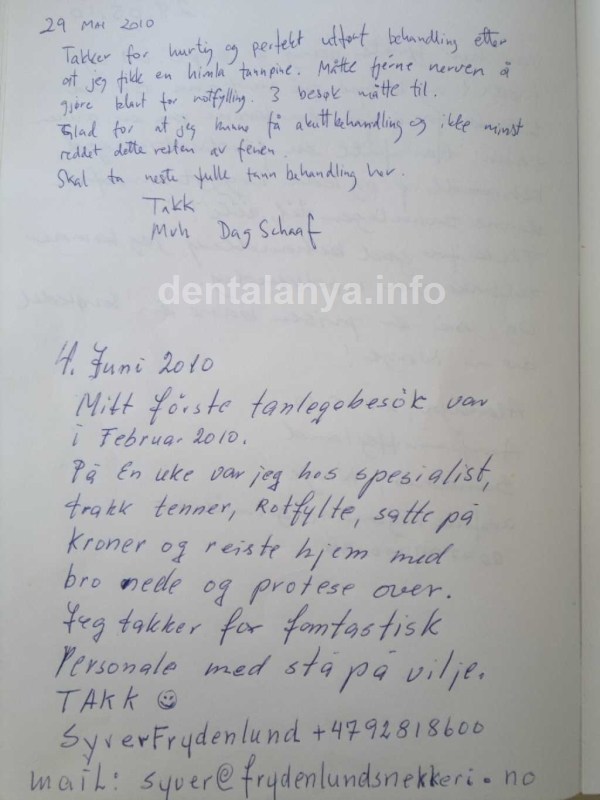 29 Mai 2010
Takker for hurtig og perfekt utført behandling etter
at jeg fikk en himla tannpine. Måtte fjerne nerven å
gjøre klart for rotfylling. 3 besøk måtte til.
Glad for at jeg kunne få akuttbehandling og ikke minst
reddet dette resten av ferien.
Skal ta neste fulle tannbehandling her.
Takk
Mvh Dag Schaaf
dentalanya.info
4. Juni 2010
Mitt förste tanlegebesök var
i Februar 2010.
På En uke var jeg hos spesialist,
trakk tenner, Rotfylte, satte på
kroner og reiste hjem med
bro nede og protese over.
Jeg takker for famtastisk
Personale med stå på vilje.
TAKK ☺
Syver Frydenlund +4792818600
mail: syver@frydenlundsnekkeri.no